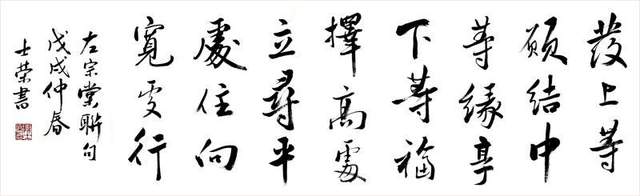 發上等
願結中
等緣享
下等福
擇高處
立尋平
處住向
寬處行
左宗棠聯句
戊戌仲春
士榮書